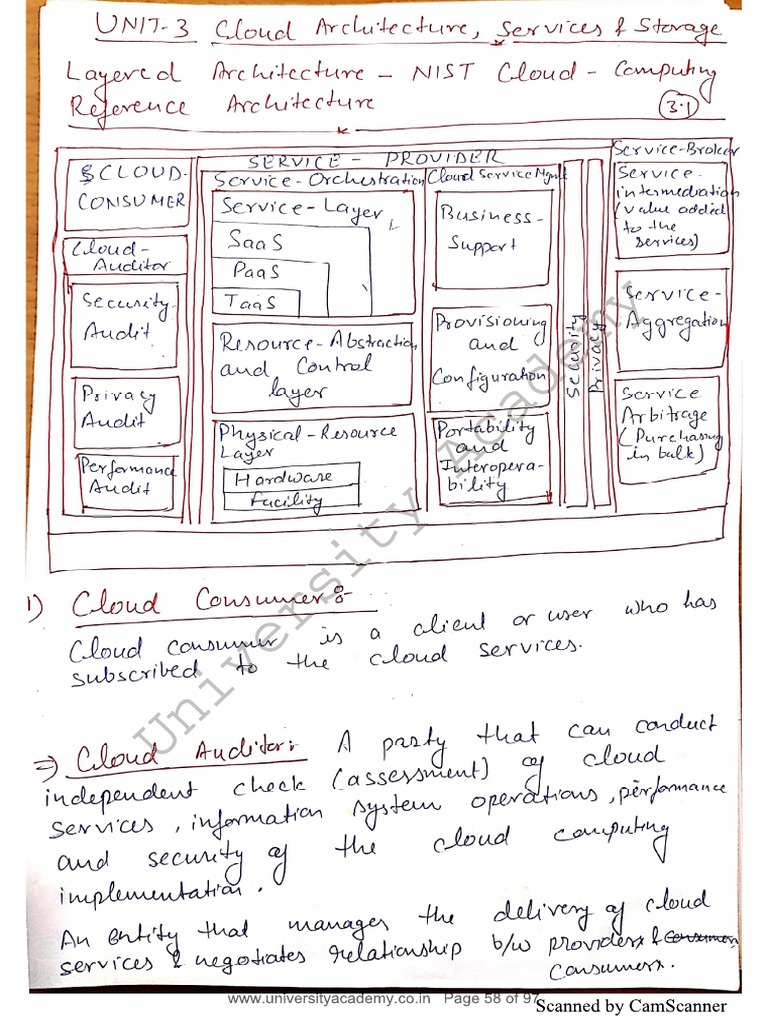 UNIT-3 Cloud Architecture, Services & Storage
Layered Architecture - NIST Cloud - Computing
Reference Architecture
3.1
SERVICE - PROVIDER
Service-Broker
CLOUD-
CONSUMER
Cloud-
Auditor
Security-
Audit
Privacy
Audit
Performance
Audit
Service-Orchestration
Service-Layer
SaaS
PaaS
IaaS
Resource-Abstraction
and Control
layer
Physical-Resource
Layer
Hardware
Facility
Cloud Service Mgmt
Business-
Support
Provisioning
and
Configuration
Portability
and
Interopera-
bility
Security
Privacy
Service-
intermediation
(value added
to the
services)
Service-
Aggregation
Service
Arbitrage
(Purchasing
in bulk)
1) Cloud Consumer:-
Cloud consumer is a client or user who has
subscribed to the cloud services.
⇒ Cloud Auditor: A party that can conduct
independent check (assessment) of cloud
services, information system operations, performance
and security of the cloud computing
implementation.
An entity that manages the delivery of cloud
services & negotiates relationship b/w providers & consumers
consumers.
University Academy
www.universityacademy.co.in Page 58 of 97
Scanned by CamScanner